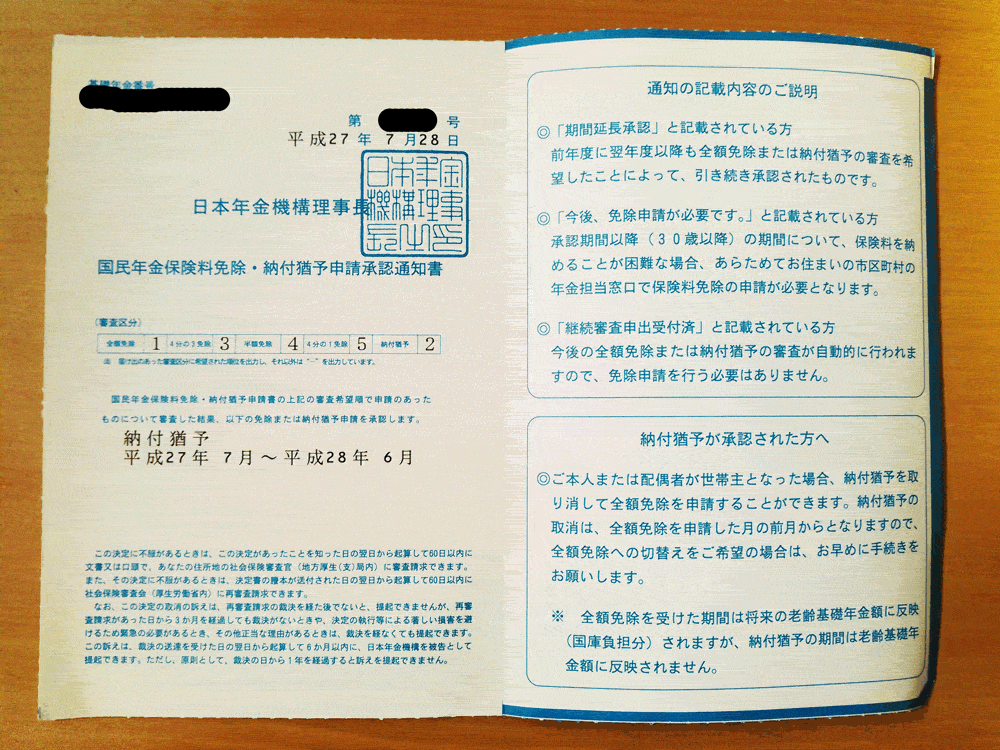 基礎年金番号
第 号
平成27年 7月28日
日本年金機構理事長
日本年金機構理事長之印
国民年金保険料免除・納付猶予申請承認通知書
(審査区分)
全額免除 1 4分の3免除 3 半額免除 4 4分の1免除 5 納付猶予 2
※ 届け出のあった審査区分に希望された順位を出力し、それ以外は"−"を出力しています。
国民年金保険料免除・納付猶予申請書の上記の審査希望順で申請のあった
ものについて審査した結果、以下の免除または納付猶予申請を承認します。
納付猶予
平成27年 7月～平成28年 6月
この決定に不服があるときは、この決定があったことを知った日の翌日から起算して60日以内に
文書又は口頭で、あなたの住所地の社会保険審査官(地方厚生(支)局内)に審査請求できます。
また、その決定に不服があるときは、決定書の謄本が送付された日の翌日から起算して60日以内に
社会保険審査会(厚生労働省内)に再審査請求できます。
なお、この決定の取消の訴えは、再審査請求の裁決を経た後でないと、提起できませんが、再審
査請求があった日から3か月を経過しても裁決がないときや、決定の執行等による著しい損害を避
けるため緊急の必要があるとき、その他正当な理由があるときは、裁決を経なくても提起できます。
この訴えは、裁決の送達を受けた日の翌日から起算して6か月以内に、日本年金機構を被告として
提起できます。ただし、原則として、裁決の日から1年を経過すると訴えを提起できません。
通知の記載内容のご説明
◎「期間延長承認」と記載されている方
前年度に翌年度以降も全額免除または納付猶予の審査を希
望したことによって、引き続き承認されたものです。
◎「今後、免除申請が必要です。」と記載されている方
承認期間以降(30歳以降)の期間について、保険料を納
めることが困難な場合、あらためてお住まいの市区町村の
年金担当窓口で保険料免除の申請が必要となります。
◎「継続審査申出受付済」と記載されている方
今後の全額免除または納付猶予の審査が自動的に行われま
すので、免除申請を行う必要はありません。
納付猶予が承認された方へ
◎ご本人または配偶者が世帯主となった場合、納付猶予を取
り消して全額免除を申請することができます。納付猶予の
取消は、全額免除を申請した月の前月からとなりますので、
全額免除への切替えをご希望の場合は、お早めに手続きを
お願いします。
※ 全額免除を受けた期間は将来の老齢基礎年金額に反映
(国庫負担分)されますが、納付猶予の期間は老齢基礎年
金額に反映されません。